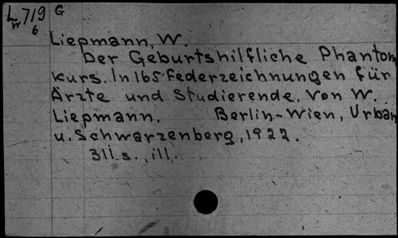 L 719 G
W 6
Liepmann, W.
Der Geburtshilfliche Phantom
kurs. In 165 Federzeichnungen für
Ärzte und Studierende. Von W.
Liepmann. Berlin-Wien, Urban
u. Schwarzenberg, 1922.
311 s., ill.